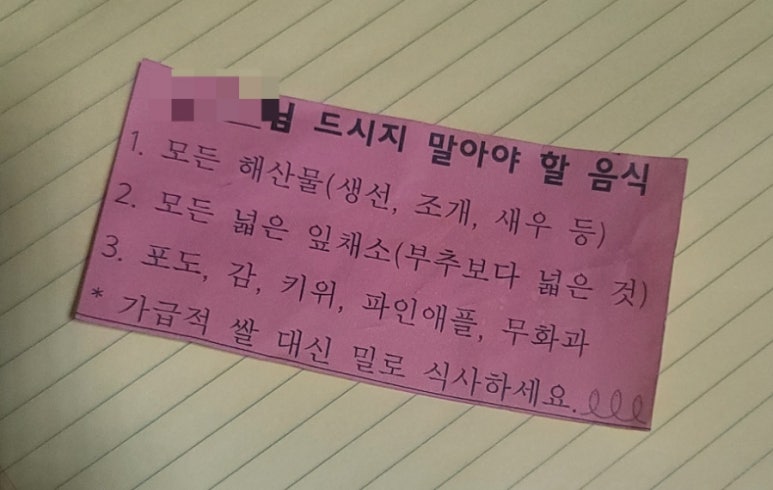 님 드시지 말아야 할 음식
1. 모든 해산물(생선, 조개, 새우 등)
2. 모든 넓은 잎채소(부추보다 넓은 것)
3. 포도, 감, 키위, 파인애플, 무화과
* 가급적 쌀 대신 밀로 식사하세요.